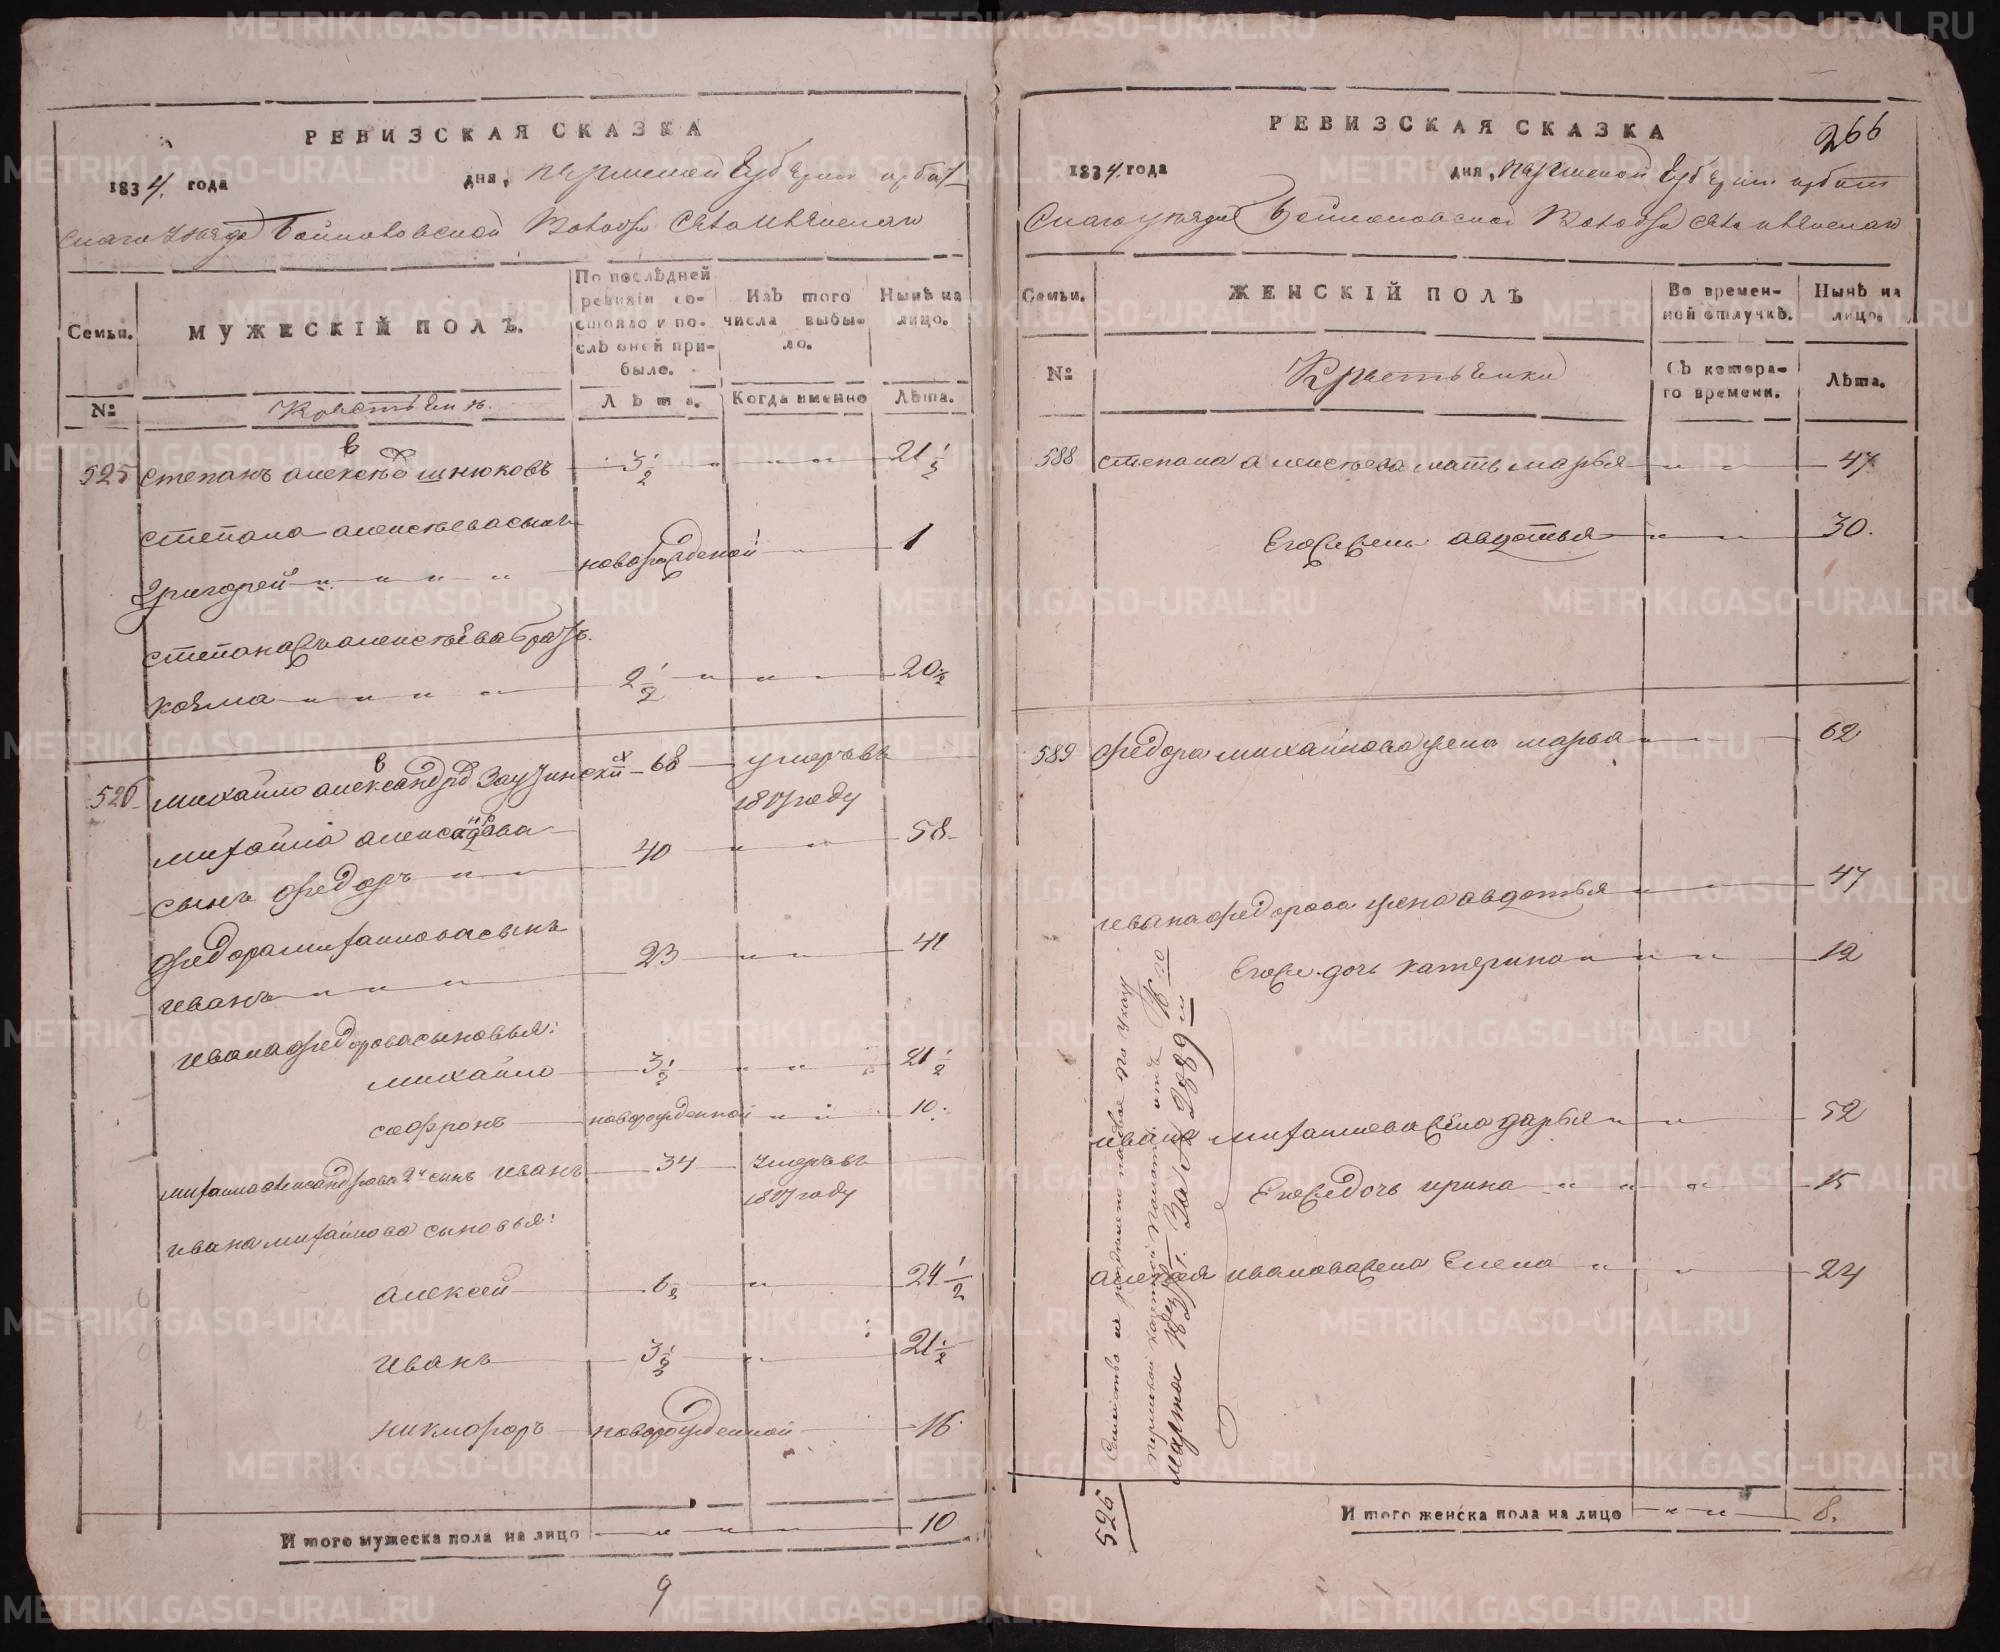 РЕВИЗСКАЯ СКАЗКА
1834. года дня, пермской Губернии ирбит
скаго уезда Волости Села
Семьи.
МУЖЕСКІЙ ПОЛЪ.
По послѣдней ревизіи состояло и послѣ оней прибыло.
Изъ того числа выбыло.
Нынѣ на лицо.
№ Крестьянъ. Лѣта. Когда именно Лѣта.
525 степанъ алексѣев шнюковъ 3 1/2 „ „ „ 21 1/2
степана алексѣева сынъ
Григорей „ „ „ „ новорожденой „ 1
степана алексѣева братъ
козма „ „ „ „ 2 1/2 „ „ „ 20 1/2
526 михайло александров 68 умеръ въ
1817 году
михайла александрова
сынъ Федоръ „ „ 40 „ „ 58
Федора михаилова сынъ
иванъ „ „ „ 23 „ „ 41
ивана федорова сыновья:
михайло 3 1/2 „ „ 21 1/2
софронъ новорожденной „ „ 10.
михаила александрова 2й сынъ иванъ 34 умеръ въ
1817 году
ивана михайлова сыновья:
алексей 6 1/2 „ 24 1/2
иванъ 3 1/2 „ 21 1/2
никифоръ новорожденной 16
Итого мужеска пола на лицо „ „ „ 10
9
266
РЕВИЗСКАЯ СКАЗКА
1834. года дня, пермской Губернии ирбит
скаго уезда Волости Села
Семьи.
ЖЕНСКІЙ ПОЛЪ
Во временной отлучкѣ.
Нынѣ на лицо.
№ Крестьянки Съ котораго времени. Лѣта.
588 степана алексѣева мать марья „ „ 47
Его жена авдотья „ „ 30.
589 Федора михайлова жена марья „ „ 62
ивана федорова жена авдотья „ „ 47
Его дочь катерина „ „ „ 12
ивана михаилова жена дарья „ „ 52
Его дочь ирина „ „ „ 15
алексея иванова жена Елена „ „ „ 24
526 Семейство
пермской казенной палаты отъ
марта 1838 г. За № 2389м
Итого женска пола на лицо „ „ 8.
METRIKI.GASO-URAL.RU